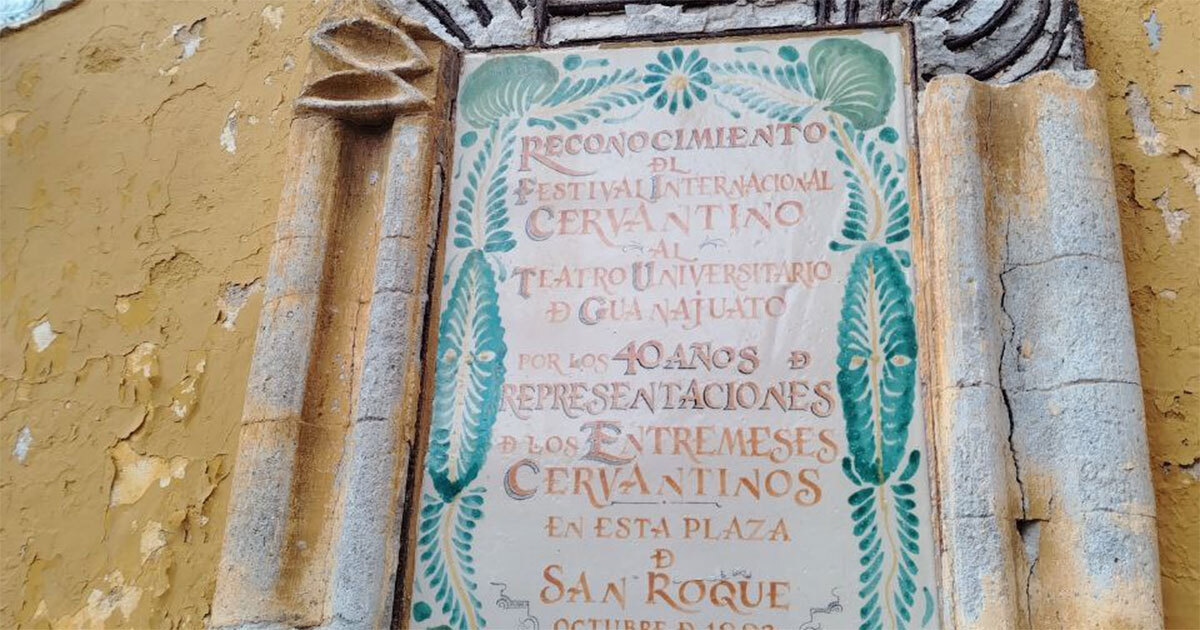 RECONOCIMIENTO
DEL
FESTIVAL INTERNACIONAL
CERVANTINO
AL
TEATRO UNIVERSITARIO
DE GUANAJUATO
POR LOS 40 AÑOS DE
REPRESENTACIONES
DE LOS ENTREMESES
CERVANTINOS
EN ESTA PLAZA
DE
SAN ROQUE
OCTUBRE DE